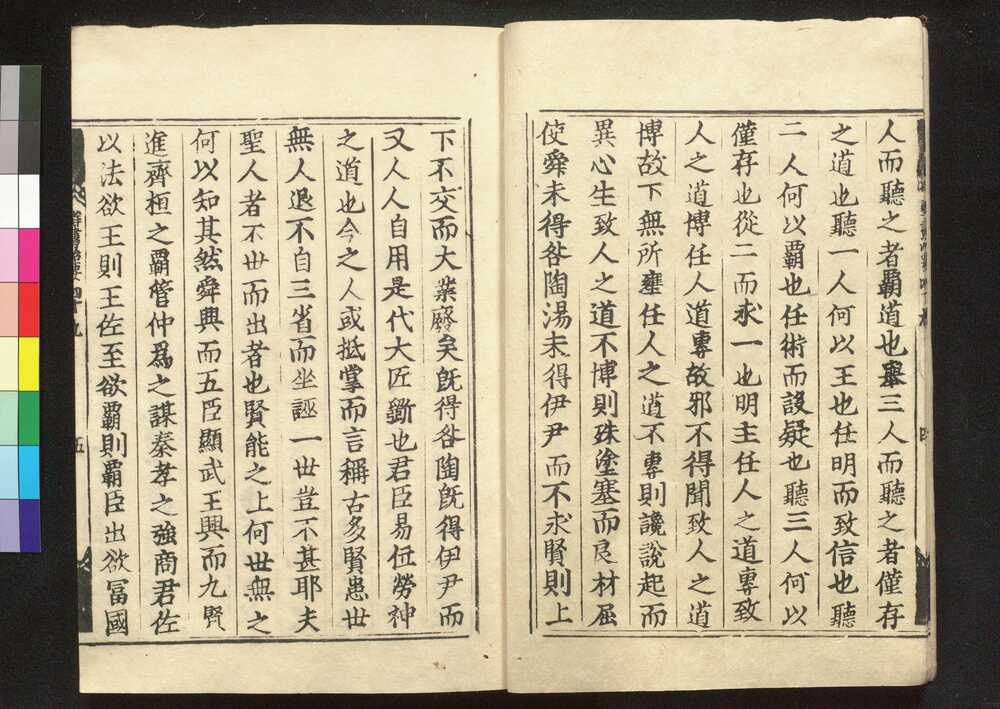 人而聽之者霸道也舉三人而聽之者僅存
之道也聽一人何以王也任明而致信也聽
二人何以霸也任術而設疑也聽三人何以
僅存也從二而求一也明主任人之道專致
人之道博任人道專故邪不得聞致人之道
博故下無所壅任人之道不專則讒說起而
異心生致人之道不博則殊塗塞而良材屈
使舜未得咎陶湯未得伊尹而不求賢則上
下不交而大業廢矣旣得咎陶旣得伊尹而
又人人自用是代大匠斵也君臣易位勞神
之道也今之人或抵掌而言稱古多賢患世
無人退不自三省而坐誣一世豈不甚耶夫
聖人者不世而出者也賢能之上何世無之
何以知其然舜興而五臣顯武王興而九賢
進齊桓之霸管仲爲之謀秦孝之強商君佐
以法欲王則王佐至欲霸則霸臣出欲冨國
群書治要 四十九
五